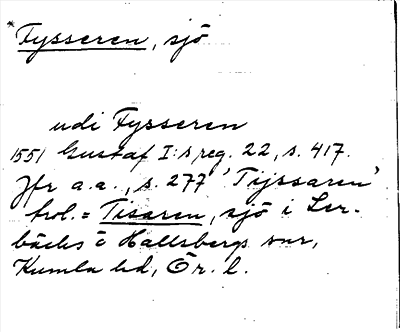 *Fysseren, sjö
udi Fysseren
1551 Gustaf I:s reg. 22, s. 417.
Jfr a.a., s. 277 'Tijssaren'
trol. = Tisaren, sjö i Ler-
bäcks o Hallsbergs snr,
Kumla hd, Ör. l.